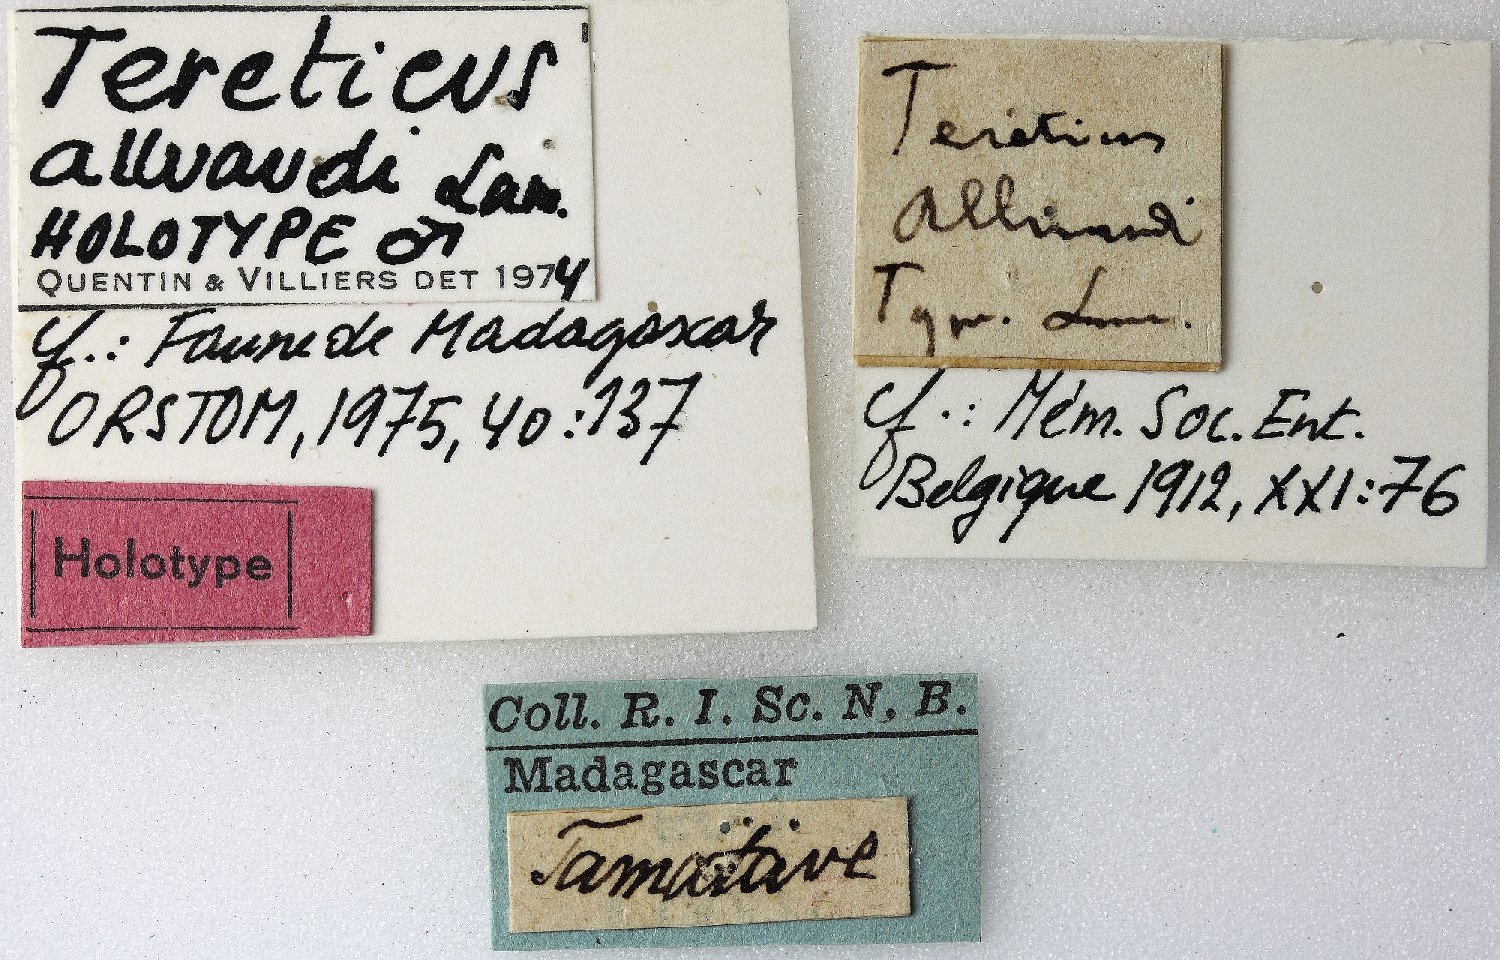 Tereticus
alluaudi Lam.
HOLOTYPE ♂
QUENTIN & VILLIERS DET 1974
cf.: Faune de Madagascar
ORSTOM, 1975, 40:137
Holotype
Tereticus
Alluaudi
Type. Lam.
cf.: Mém. Soc. Ent.
Belgique 1912, XXI:76
Coll. R. I. Sc. N. B.
Madagascar
Tamatave